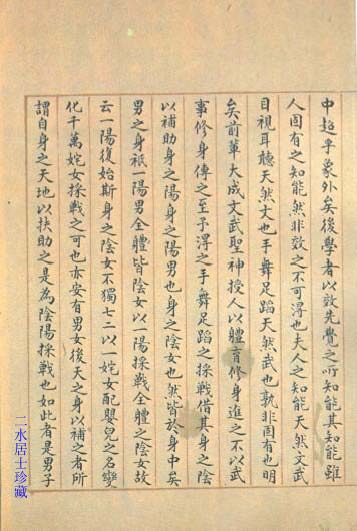 中超乎象外矣後學者以效先覺之所知能其知能雖
人固有之知能然非效之不可得也夫人之知能天然文武
目視耳聽天然文也手舞足蹈天然武也孰非固有也明
矣前輩大成文武聖神授人以體育修身進之不以武
事修身傳之至予得之手舞足蹈之採戰借其身之陰
以補助身之陽身之陽男也身之陰女也然皆於身中矣
男之身祇一陽男全體皆陰女以一陽採戰全體之陰女故
云一陽復始斯身之陰女不獨七二以一姹女配嬰兒之名變
化千萬姹女採戰之可也亦安有男女後天之身以補之者所
謂自身之天地以扶助之是為陰陽採戰也如此者是男子
二水居士珍藏